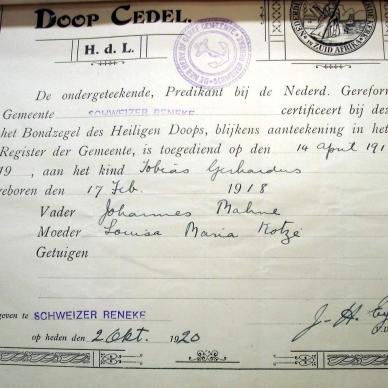 DOOP CEDEL.
H. d. L.
De ondergeteekende, Predikant bij de Nederd. Gereform
Gemeente SCHWEIZER RENEKE certificeert bij dez
het Bondzegel des Heiligen Doops, blijkens aanteekening in het
Register der Gemeente, is toegediend op den 14 april 191
19 , aan het kind Tobias Gerhardus
eboren den 17 Feb. 1918
Vader Johannes Mahne
Moeder Louisa Maria Kotzé
Getuigen
even te SCHWEIZER RENEKE
op heden den 2 Okt. 1920
J. H.